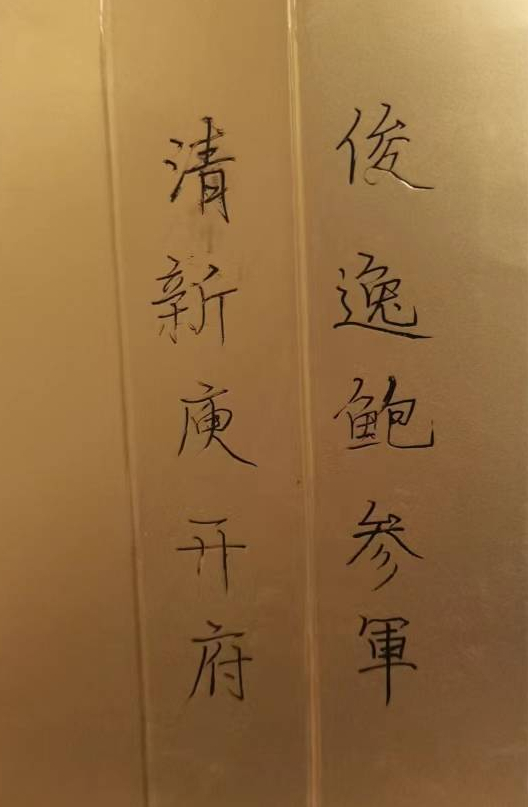 清新庾开府
俊逸鲍参軍